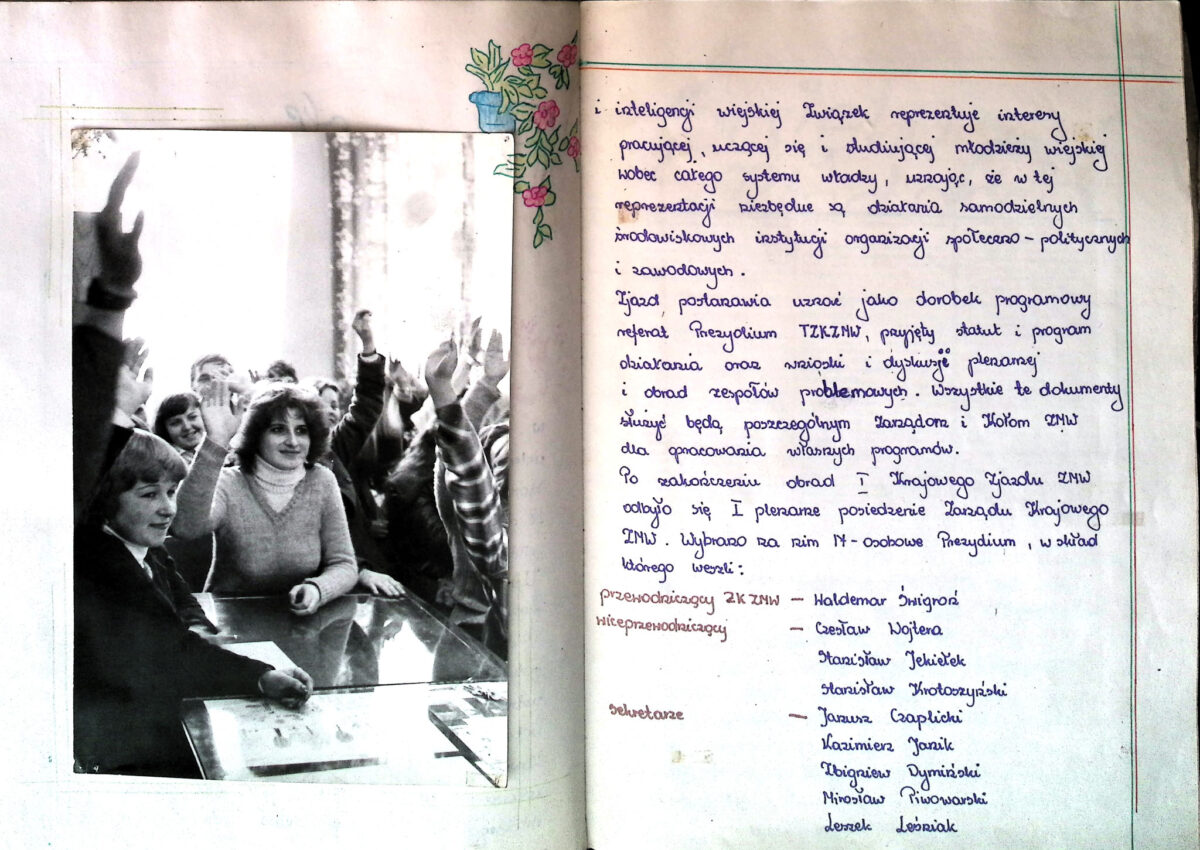 i inteligencji wiejskiej Związek reprezentuje interesy
pracującej, uczącej się i studiującej młodzieży wiejskiej
wobec całego systemu władzy, uznając, że w tej
reprezentacji niezbędne są działania samodzielnych
środowiskowych instytucji organizacji społeczno-politycznych
i zawodowych.
Zjazd postanawia uznać jako dorobek programowy
referat Prezydium TZKZMW, przyjęty statut i program
działania oraz wnioski i dyskusji plenarnej
i obrad zespołów problemowych. Wszystkie te dokumenty
służyć będą poszczególnym Zarządom i Kołom ZMW
dla opracowania własnych programów.
Po zakończeniu obrad I Krajowego Zjazdu ZMW
odbyło się I plenarne posiedzenie Zarządu Krajowego
ZMW. Wybrano na nim 17-osobowe Prezydium, w skład
którego weszli:
przewodniczący ZK ZMW — Waldemar Świgroń
wiceprzewodniczący — Czesław Wojtera
Stanisław Jekiełek
Stanisław Krotoszyński
sekretarze — Janusz Czaplicki
Kazimierz Janik
Zbigniew Dymiński
Mirosław Piwowarski
Leszek Leśniak